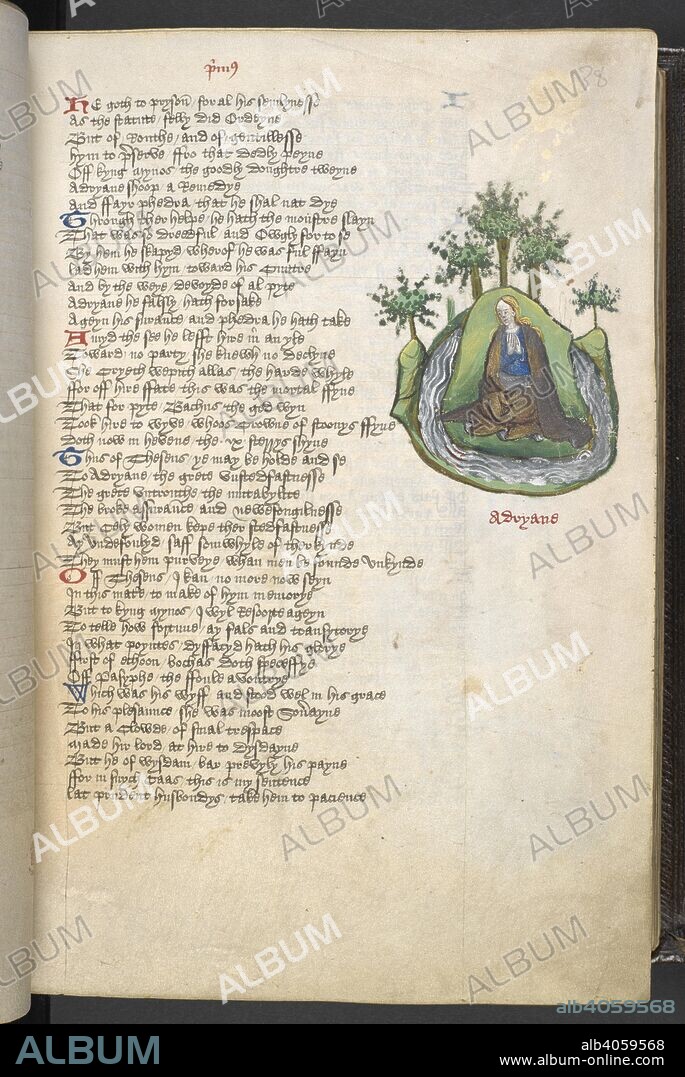 p̄mꝰ
He goth to pryson for al his semlynesse
As the statute felly did Ordeyne
But of Routhe and of gentillesse
hym to p̄serve ffro that dedly peyne
Off kyng mynos the goodly doughtre tweyne
Adryane shoop a Remedye
And ffayr phedra that he shal nat dye
Through ther helpe he hath the monstre slayn
That was so dredful and Owgh for to se
By hem he skapyd wherof he was ful ffayn
lad hem with hym toward his Cuntre
And by the weye devoyde of al pyte
Adryane he falsly hath forsake
Ageyn his surance and phedra he hath take
Amyd the see he lefft hire in an yle
Toward no party she knewh no declyne
She Cryeth wepith allas the harde whyle
ffor off hire ffate this was the mortal ffyne
That for pyte Bachus the god wyn
Took hire to wyve whoos Crowne of stonys ffyne
doth now in hevene the sterrys shyne
Thus of Theseus ye may be holde and se
To Adryane the grete vnstedfastnesse
The grete vntrouthe the mutabylite
The broke assurance and newefangilnesse
But Cely women kepe ther stedfastnesse
Ay vndefoulyd saff somwhyle of ther kynde
They must hem purveye whan men be founde vnkynde
Off Theseus J kan no more now seyn
In this mate to make of hym memorye
But to kyng mynos J wyl Resorte ageyn
To telle how fortune ay fals and transytorye
In what poyntes dyffacyd hath his glorye
ffirst of ethoon bochas doth specefye
Off Pasyphe the ffoule avoutrye
Which was his wyff and stood wel in his grace
To his plesaunce she was moost Sovrayne
But a Clowde of smal trespace
made hir lord at hire to dysdayne
But he of wysdam bar prevyly his payne
ffor in suych Caas this is my sentence
lat prudent husbondys take hem to pacience
Adryane
ALBUM
alb4059568
ALBUM
alb4059568
www.album-online.com